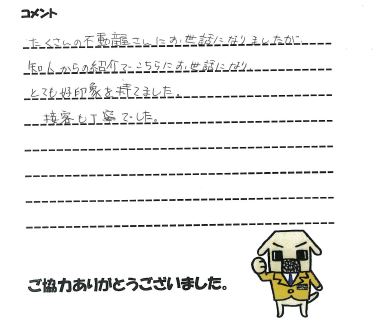 コメント
たくさんの不動産さんにお世話になりましたが、
知人からの紹介でこちらにお世話になり、
とても好印象を持てました。
接客も丁寧でした。
ご協力ありがとうございました。